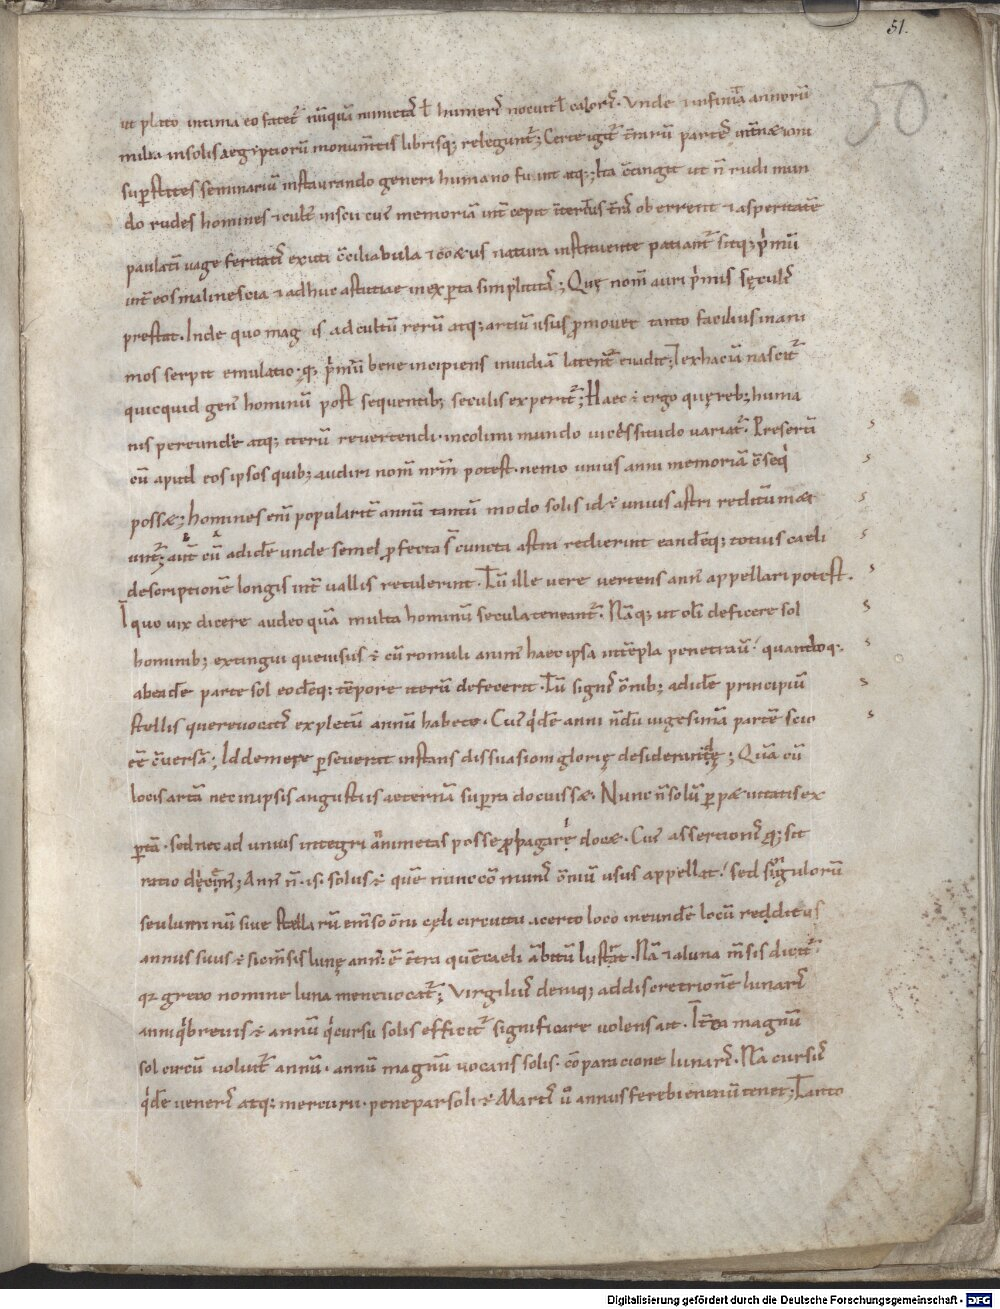 51.
50
ut plato intima eo fatet᷑ nūquā nimietas ł humeris nocuit ł caloris. Unde & infinita annorū
milia in solis aegyptiorū monum̄tis librisq; releguntᷣ; Certe igitᷣ t̄rarū partes int̄necioni
sup̄stites seminariū instaurando generi humano fiunt atq; ita c̄tingit ut n̄ rudi mun
do rudes homines & cult᷒ inscii cui᷒ memoriā int̄cepit int̄erit᷒ t̄ris oberrent & asperitatē
paulatī vage feritatis exuti c̄ciliabula & coetus natura instituente patiantᷣ sitq; p̍mū
int̄ eos mali nescia & adhuc astutiae inexperta simplicitas; Quę nom̄ auri p̍mis sęculis
prestat. Inde quo magis ad cultū rerū atq; artiū usus p̄movet tanto facilius in ani
mos serpit emulatio; q; p̍mū bene incipiens in invidiā latent᷒ evadit; & ex hac iā nascitᷣ
quicquid gen᷒ hominū post sequentib; seculis experitᷣ; Haec ē ergo quę reb; huma
nis pereundi atq; iterū revertendi incolumi mundo vicessitudo variatᷣ. Presertī
cū apud eos ipsos quib; audiri nom̄ nr̄m potest nemo unius anni memoriā c̄seq̍
possæ; homines enī populariт̄ annū tantū modo solis id ē unius astri reditu mæ
untᷣ; aut̄ cū ad idē unde semel p̄fecta s̄ cuncta astra redierint eandēq; totius caeli
descriptionē longis int̄vallis retulerint. Tū ille vere vertens ann᷒ appellari potest.
In quo vix dicere audeo quā multa hominū secula teneantᷣ. Nāq; ut olī deficere sol
hominib; extingui que visus ē cū romuli anim᷒ haec ipsa in tēpla penetravit; quandoq;
ab eadē parte sol eodēq; tēpore iterū defecerit. Tū signis om̄ib; ad idē principiū
stellis que revocatis expletū annū habeto. Cui᷒ q̍dē anni nōdū vigesimā partē scio
eē c̄versā; Iddem ꝑseverat instans dissuasioni glorię desiderandę; Quā cū
locis artā nec in ipsis angustiis aeternā supra docuissæ. Nunc n̄ solū ꝑpætuitatis ex
ꝑtā. sed nec ad unius integri anni metas posse propagari docæ. Cui᷒ assertionis q; sit
ratio dicem᷒; Ann᷒ n̄ is solus ē quē nunc cōmunis om̄iū usus appellat; sed singulorū
seu luminū sive stellarū emenso om̄i cęli circuitu a certo loco in eundē locū redditus
annus suus ē sic m̄sis lunę ann᷒ ē int̄ra quē caeli ābitū lustrat. Nā & a luna m̄sis dicitᷣ
q; greco nomine luna mene vocatᷣ; Virgilius deniq; ad discretionē lunaris
anni q̍ brevis ē annū q̍ cursu solis efficitᷣ significare volens ait. Int̄ea magnū
sol circū volvitᷣ annū. annū magnū vocans solis. cōparacione lunaris. Nā cursus
q̍dē veneris atq; mercurii pene par soli ē Martis v̊ annus fere biennium tenet; Tanto
Digitalisierung gefördert durch die Deutsche Forschungsgemeinschaft - DFG